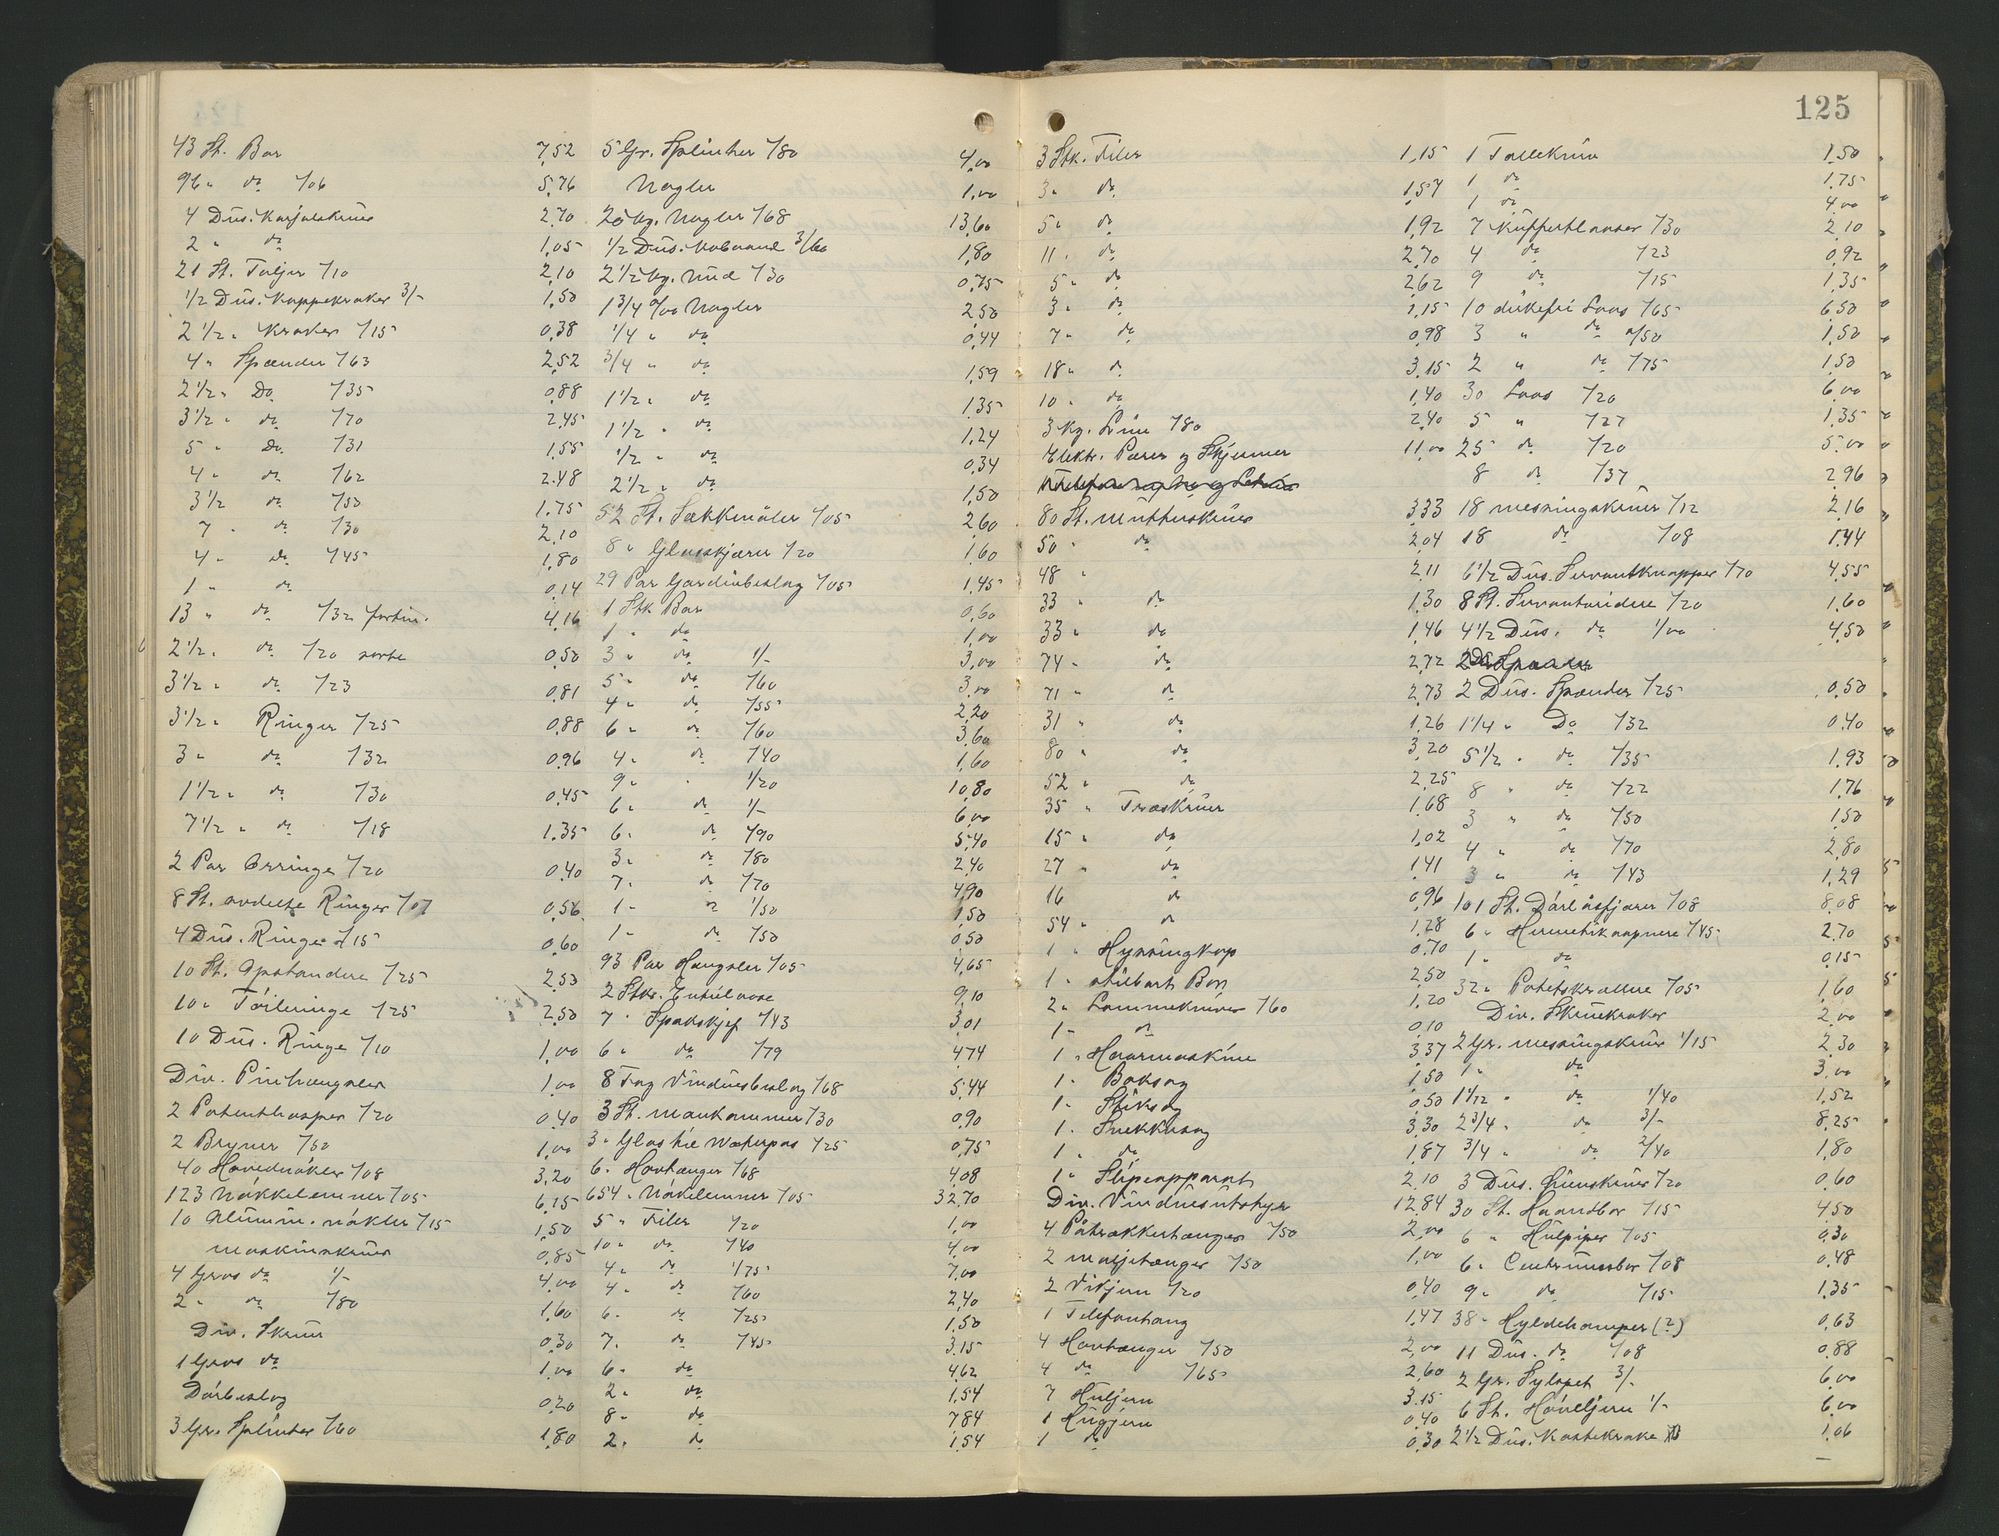 125
43 St. Bor 7,52
96 " do. 7/06 5,76
4 Dus. Karjolskruer 2,70
2 " do 1,05
21 St. Taljer 7/10 2,10
1/2 Dus. Kappekroker 3/- 1,50
2 1/2 " Kroker 7/15 0,38
4 " Spænder 7/63 2,52
2 1/2 " Do 7/35 0,88
3 1/2 " do 7/70 2,45
5 " Do. 7/31 1,55
4 " do 7/62 2,48
3 1/2 do 7/50 1,75
7 " do 7/30 2,10
4 " do 7/45 1,80
1 " do 0,14
13 " do 7/32 fortin. 4,16
2 1/2 " do 7/20 sorte 0,50
3 1/2 " do 7/23 0,81
3 1/2 " Ringer 7/25 0,88
3 " do 7/32 0,96
1 1/2 " do 7/30 0,45
7 1/2 " do 7/18 1,35
2 Par Ørringe 7/20 0,40
8 St. avdelte Ringer 7/07 0,56
4 Dus. Ringe 7/15 0,60
10 St. Opstandere 7/25 2,50
10 " Töileringe 7/25 2,50
10 Dus. Ringe 7/10 1,00
Div. Pinhængsler 1,00
2 Patenthasper 7/20 0,40
2 Bryner 7/50 1,00
40 Hovednökler 7/08 3,20
123 Nökkelemner 7/05 6,15
10 Alumin. nökler 7/15 1,50
Maskinskruer 0,85
4 Gros do 1/- 4,00
2 " do 7/80 1,60
Div. Skruer 0,30
1 Gros do 1,00
Dörbeslag 0,20
3 Gr. Splinter 7/60 1,80
5 Gr. Splinter 7/80 4,00
Nagler 1,00
20 kg. Nagler 7/68 13,60
1/2 Dus. 3/60 1,80
2 1/2 kg. 7/30 0,75
1 3/4 o/oo Nagler 2,50
1/4 " do 0,44
3/4 " do 1,59
1 1/2 " do 1,35
1 1/2 " do 1,24
1/2 " do 0,34
2 1/2 " do 1,50
52 St. Sækkenåler 7/05 2,60
8 " Glasskjærer 7/20 1,60
29 Par Gardinbeslag 7/05 1,45
1 Stk Bor 0,60
1 " do 1,00
3 " do 1/- 3,00
5 " do 7/60 3,00
4 " do 7/55 2,20
6 " do 7/60 3,60
4 " do 7/40 1,60
9 " " 1/20 10,80
6 " do 1/- 6,00
6 " do 7/90 5,40
3 " do 7/80 2,40
7 " do 7/70 4,90
1 " do 1/50 1,50
1 " do 7/50 0,50
93 Par Hængsler 7/05 4,65
2 Stk. 9,10
7 " 7/43 3,01
6 " do 7/79 4,74
8 Fag Vinduesbeslag 7/68 5,44
3 St. 7/30 0,90
3 " Glas til Waterpas 7/25 0,75
6 " Hovtænger 7/68 4,08
654 " Nökelemner 7/05 32,70
5 " Filer 7/20 1,00
10 " do 7/40 4,00
4 " do 1/75 7,00
4 " do 7/60 2,40
6 " do 7/25 1,50
7 " do 7/45 3,15
6 " do 4,62
2 " do 1,54
8 " do 7,84
2 " do 1,54
3 Stk. Filer 1,15
3 " do 1,57
5 " do 1,92
11 " do 2,70
5 " do 2,62
3 " do 1,15
7 " do 0,98
18 " do 3,15
10 " do 1,40
3 kg. Lim 7/80 2,40
Elektr. Pærer og Skjermer 11,00
80 St. Mutterskruer 3,33
50 " do 2,04
48 " 2,11
33 " do 1,30
33 " do 1,46
74 " do 2,72
71 " do 2,73
31 " do 1,26
80 " do 3,20
52 " do 2,25
35 " Træskruer 1,68
15 " do 1,02
27 " do 1,41
16 do 0,96
54 " do 1,28
1 " Hyssingkop 0,70
1 " stilbart Bor 2,50
2 " Lommekniver 7/60 1,20
1 " do 0,10
1 " Haarmaskine 3,37
1 " Baksag 1,50
1 " Stiksag 0,50
1 " Snekkersag 3,30
1 " do 1,87
1 " Slipeapparat 2,10
Div. Vinduesutstyr 12,84
4 Påtrækkertænger 7/50 2,00
2 maljetænger 7/50 1,00
2 Vikjern 7/20 0,40
1 Telefontang 1,47
4 Hovtænger 7/50 2,00
4 do 7/65 2,60
7 Huljern 3,15
1 Hugjern 0,40
1 do 0,30
1 Tollekniv 1,50
1 do 1,75
1 do 4,00
7 Kuffertlaaser 7/30 2,10
4 do 7/23 0,92
9 do 7/15 1,35
10 dirkefri Laas 7/65 6,50
3 " do a/50 1,50
2 " do 7/75 1,50
30 Laas 7/20 6,00
5 " 7/27 1,35
25 do 7/20 5,00
8 do 7/37 2,96
18 messingskruer 7/12 2,16
18 do 7/08 1,44
6 1/2 Dus. Servantknapper 7/70 4,55
8 St. Servantvridere 7/20 1,60
4 1/2 Dus. do 1/00 4,50
2 Dus. Spænder 7/25 0,50
1 1/4 " Do 7/32 0,40
5 1/2 " do 7/35 1,93
8 " do 7/22 1,76
3 " do 7/50 1,50
4 " do 7/70 2,80
3 " do 7/43 1,29
101 St. Dörlåsfjærer 7/08 8,08
6 " Hermetikaapnere 7/45 2,70
1 " do 0,15
32 " Potetskrællere 7/05 1,60
Div. Skruekroker 2,00
2 Gr. messingskruer 1/15 2,30
1 " do 3,00
1 1/12 " do 1/40 1,52
2 3/4 " do 3/- 8,25
3/4 " do 2/40 1,80
3 Dus. 7/20 0,60
30 St. Haandbor 7/15 4,50
6 " Hulpiper 7/05 0,30
6 " Centrumsbor 7/08 0,48
9 " do 7/15 1,35
38 " Hyldeknapper (?) 0,63
11 Dus. do 7/08 0,88
2 Gr. Sylspet 3/- 6,00
6 St. Höveljern 1/- 6,00
2 1/2 Dus. Kastekroke 1,06